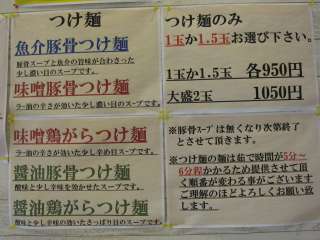 つけ麺
魚介豚骨つけ麺
豚骨スープと魚介の旨味が合わさった
少し濃い目のスープです。
味噌豚骨つけ麺
ラー油の辛さが効いた少し濃い目のスープです。
味噌鶏がらつけ麺
ラー油の辛さが効いた少し辛め目スープです。
醤油豚骨つけ麺
酸味と少し辛味を効かせたスープです。
醤油鶏がらつけ麺
酸味の効いた少しさっぱり目のスープです。
つけ麺のみ
1玉か1.5玉お選び下さい。
1玉か1.5玉 各950円
大盛2玉 1050円
※豚骨ｽｰﾌﾟは無くなり次第終了
とさせて頂きます。
※つけ麺の麺は茹で時間が5分～
6分程かかるため提供させて頂
く順番が変わる事がございます
ご理解のほどよろしくお願い致
します。